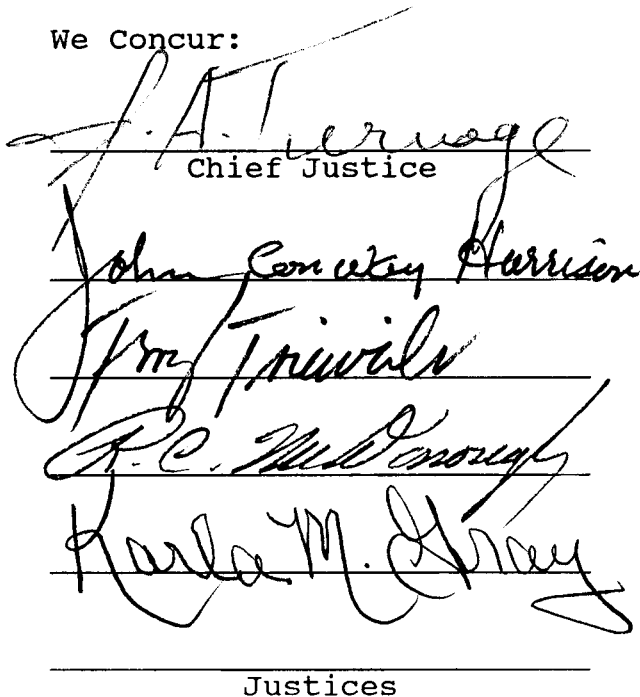 We Concur:
J. A. Turnage
Chief Justice
John Conway Harrison
Terry Trieweiler
R. C. McDonough
Karla M. Gray
Justices